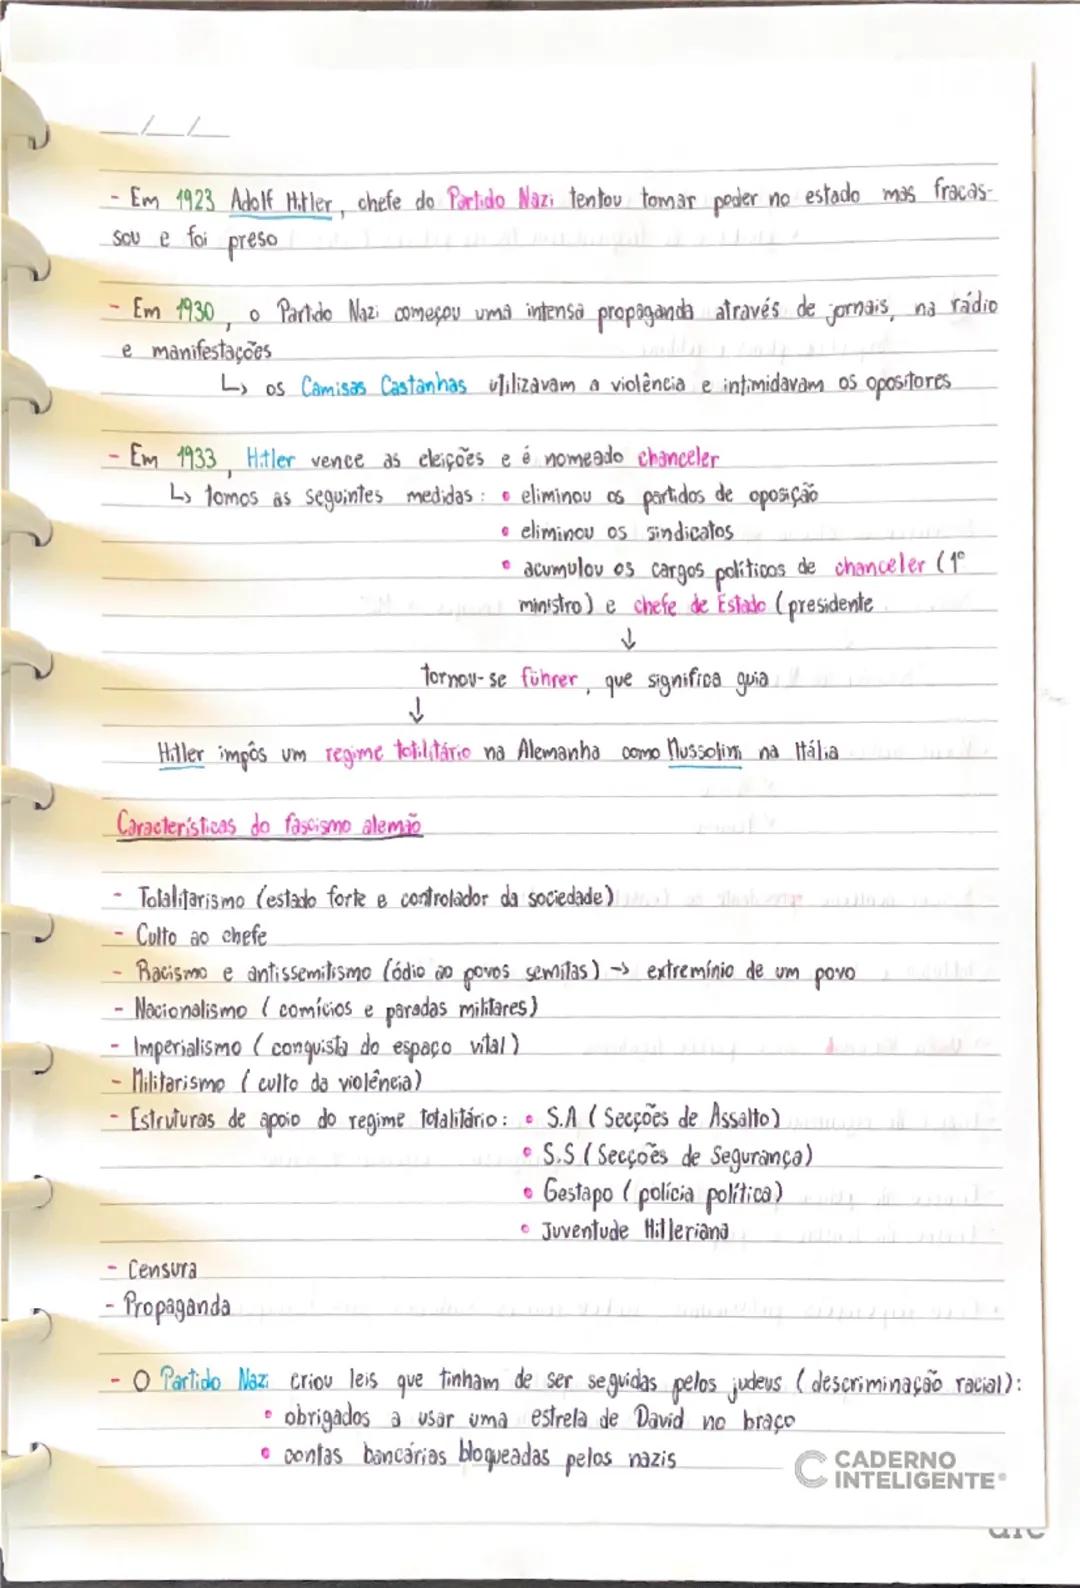 __/__/__
- Em 1923 Adolf Hitler, chefe do Partido Nazi tentou tomar poder no estado mas fracas-
sou e foi preso
- Em 1930, o Partido Nazi começou uma intensa propaganda através de jornais, na rádio
e manifestações
↳ os Camisas Castanhas utilizavam a violência e intimidavam os opositores
- Em 1933, Hitler vence as eleições e é nomeado chanceler
↳ tomos as seguintes medidas: • eliminou os partidos de oposição
• eliminou os sindicatos
• acumulou os cargos políticos de chanceler (1º
ministro) e chefe de Estado (presidente
↓
tornou-se führer, que significa guia
↓
Hitler impôs um regime totilitário na Alemanha como Mussolini na Itália
Características do fascismo alemão
- Totalitarismo (estado forte e controlador da sociedade)
- Culto ao chefe
- Racismo e antissemitismo (ódio ao povos semitas) -> extremínio de um povo
- Nacionalismo (comícios e paradas militares)
- Imperialismo (conquista do espaço vital)
- Militarismo (culto da violência)
- Estruturas de apoio do regime totalitário: • S.A (Secções de Assalto)
• S.S (Secções de Segurança)
• Gestapo (polícia política)
• Juventude Hitleriana
- Censura
- Propaganda
- O Partido Nazi criou leis que tinham de ser seguidas pelos judeus (descriminação racial):
• obrigados a usar uma estrela de David no braço
• contas bancárias bloqueadas pelos nazis
CADERNO
INTELIGENTE®